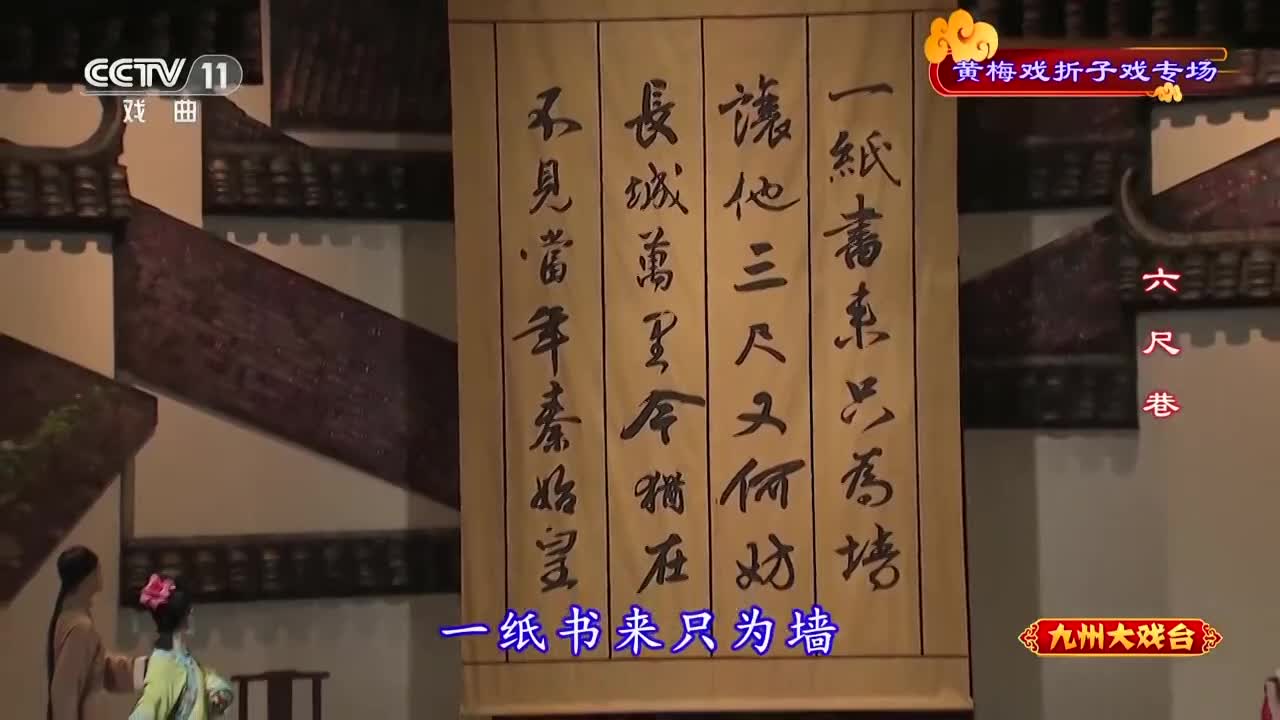 CCTV 11
戏曲
黄梅戏折子戏专场
一紙書來只為墻
讓他三尺又何妨
長城萬里今猶在
不見當年秦始皇
六尺巷
一纸书来只为墙
九州大戏台